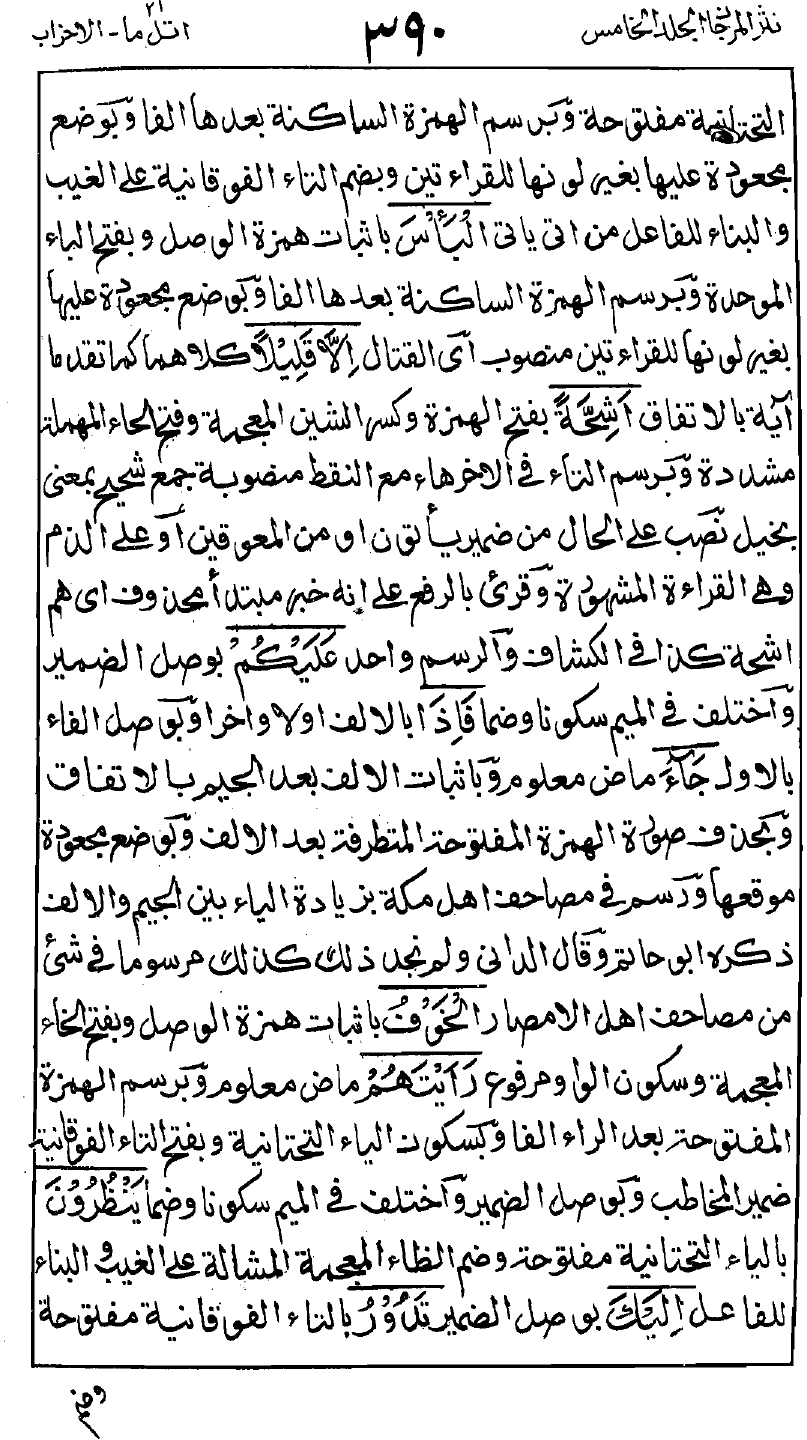 نثر المرجان الجلد الخامس ٣٩٠ اتل ما ٢١ - الاحزاب
التحتانية مفتوحة وَبرسم الهمزة الساكنة بعدها الفا وَبوضع
مجعودة عليها بغير لونها للقراءتين وبضم التاء الفوقانية على الغيب
والبناء للفاعل من اتى ياتى الْبَأْسَ باثبات همزة الوصل وبفتح الباء
الموحدة وَبرسم الهمزة الساكنة بعدها الفا وَبوضع مجعودة عليها
بغير لونها للقراءتين منصوب اَى القتال اِلَّا قَلِيْلًا كلاهما كما تقدما
آية بالاتفاق اَشِحَّةً بفتح الهمزة وكسر الشين المعجمة وفتح الحاء المهملة
مشددة وَبرسم التاء فى الاخر هاء مع النقط منصوبة جمع شحيح بمعنى
بخيل نَصب على الحال من ضمير يأتون او من المعوقين اَو على الذم
وهى القراءة المشهودة وَقرئ بالرفع على انه خبر مبتدأ محذوف اى هم
اشحة كذا فى الكشاف وَالرسم واحد عَلَيْكُمْ بوصل الضمير
وَاختلف فى الميم سكونا وضما فَاِذَا بالالف اولا واخرا وَبوصل الفاء
بالاول جَآءَ ماض معلوم وَباثبات الالف بعد الجيم بالاتفاق
وَبحذف صورة الهمزة المفتوحة المتطرفة بعد الالف وَبوضع مجعودة
موقعها وَرسم فى مصاحف اهل مكة بزيادة الياء بين الجيم والالف
ذكره ابو حاتم وَقال الدانى ولم نجد ذلك كذلك مرسوما فى شئ
من مصاحف اهل الامصار الْخَوْفُ باثبات همزة الوصل وبفتح الخاء
المعجمة وسكون الواو مرفوع رَاَيْتَهُمْ ماض معلوم وَبرسم الهمزة
المفتوحة بعد الراء الفا وَبسكون الياء التحتانية وبفتح التاء الفوقانية
ضمير المخاطب وَبوصل الضمير وَاختلف فى الميم سكونا وضما يَنْظُرُوْنَ
بالياء التحتانية مفتوحة وضم الظاء المعجمة المشالة على الغيب و البناء
للفاعل اِلَيْكَ بوصل الضمير تَدُوْرُ بالتاء الفوقانية مفتوحة